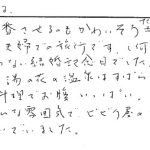 番させるのもかわいそうだ
夫婦での旅行です。何
な結婚記念日でした。
湯の花の温泉はすばら
料理でお腹いっぱい。
いな雰囲気でビビり君の
ていました。